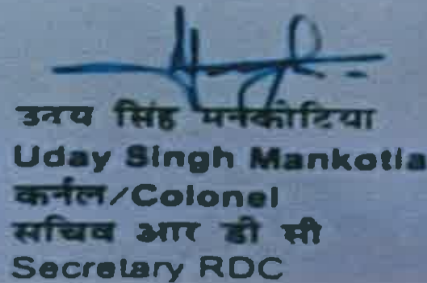 उदय सिंह मनकोटिया
Uday Singh Mankotia
कर्नल/Colonel
सचिव आर डी सी
Secretary RDC